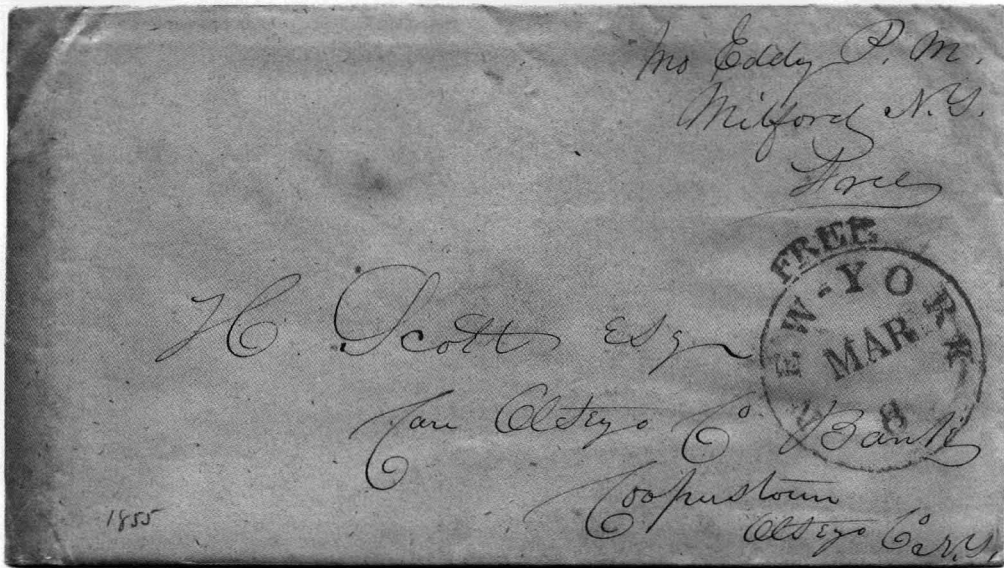 Jno Eddy P. M.
Milford N.Y.
Free
FREE
NEW-YORK
MAR
8
H. Scott Esq
Care Otsego Co Bank
Cooperstown
Otsego Co N.Y.
1855